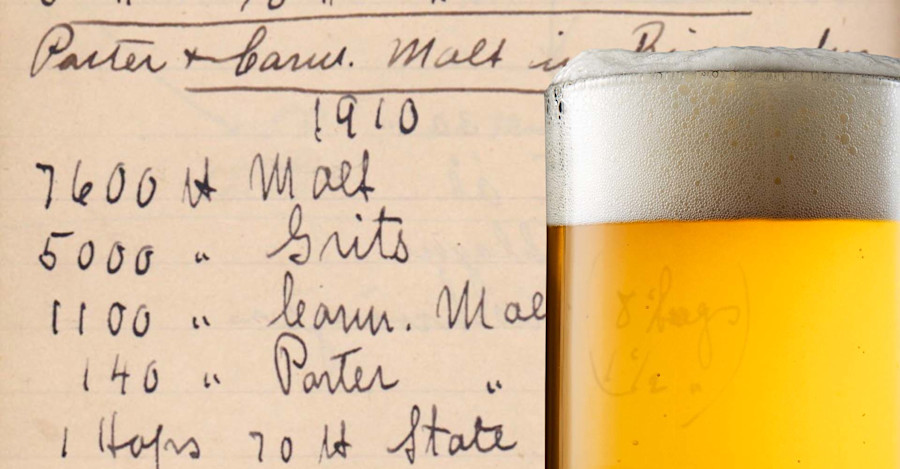 Porter + Carm. Malt in
1910
7600 # Malt
5000 " Grits
1100 " Carm. Mal 8 bags
140 " Porter " 1 1/2 "
1 Hops 70 # State